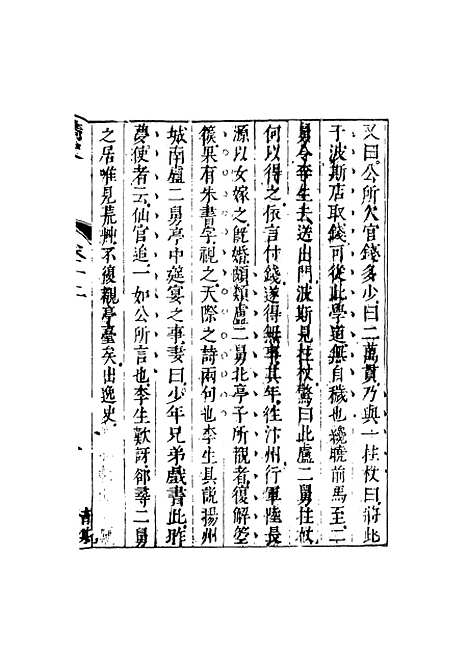 又曰公所欠官錢多少曰二萬貫乃與一拄杖曰將此
于波斯店取錢可從此學道無自穢也纔曉前馬至二
舅令李生去送出門波斯見拄杖驚曰此盧二舅拄杖
何以得之依言付錢遂得無事其年往汴州行軍陸長
源以女嫁之旣婚頗類盧二舅北亭子所覩者復解箜
篌果有朱書字視之天際之詩兩句也李生具說揚州
城南盧二舅亭中筵宴之事妻曰少年兄弟戲書此昨
夢使者云仙官追一如公所言也李生歎訝卻尋二舅
之居唯見荒艸不復覩亭臺矣出逸史
卷十二